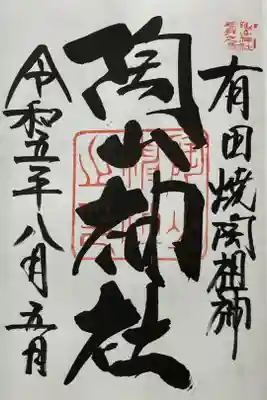 有田焼陶祖神
陶山神社
令和五年八月五日